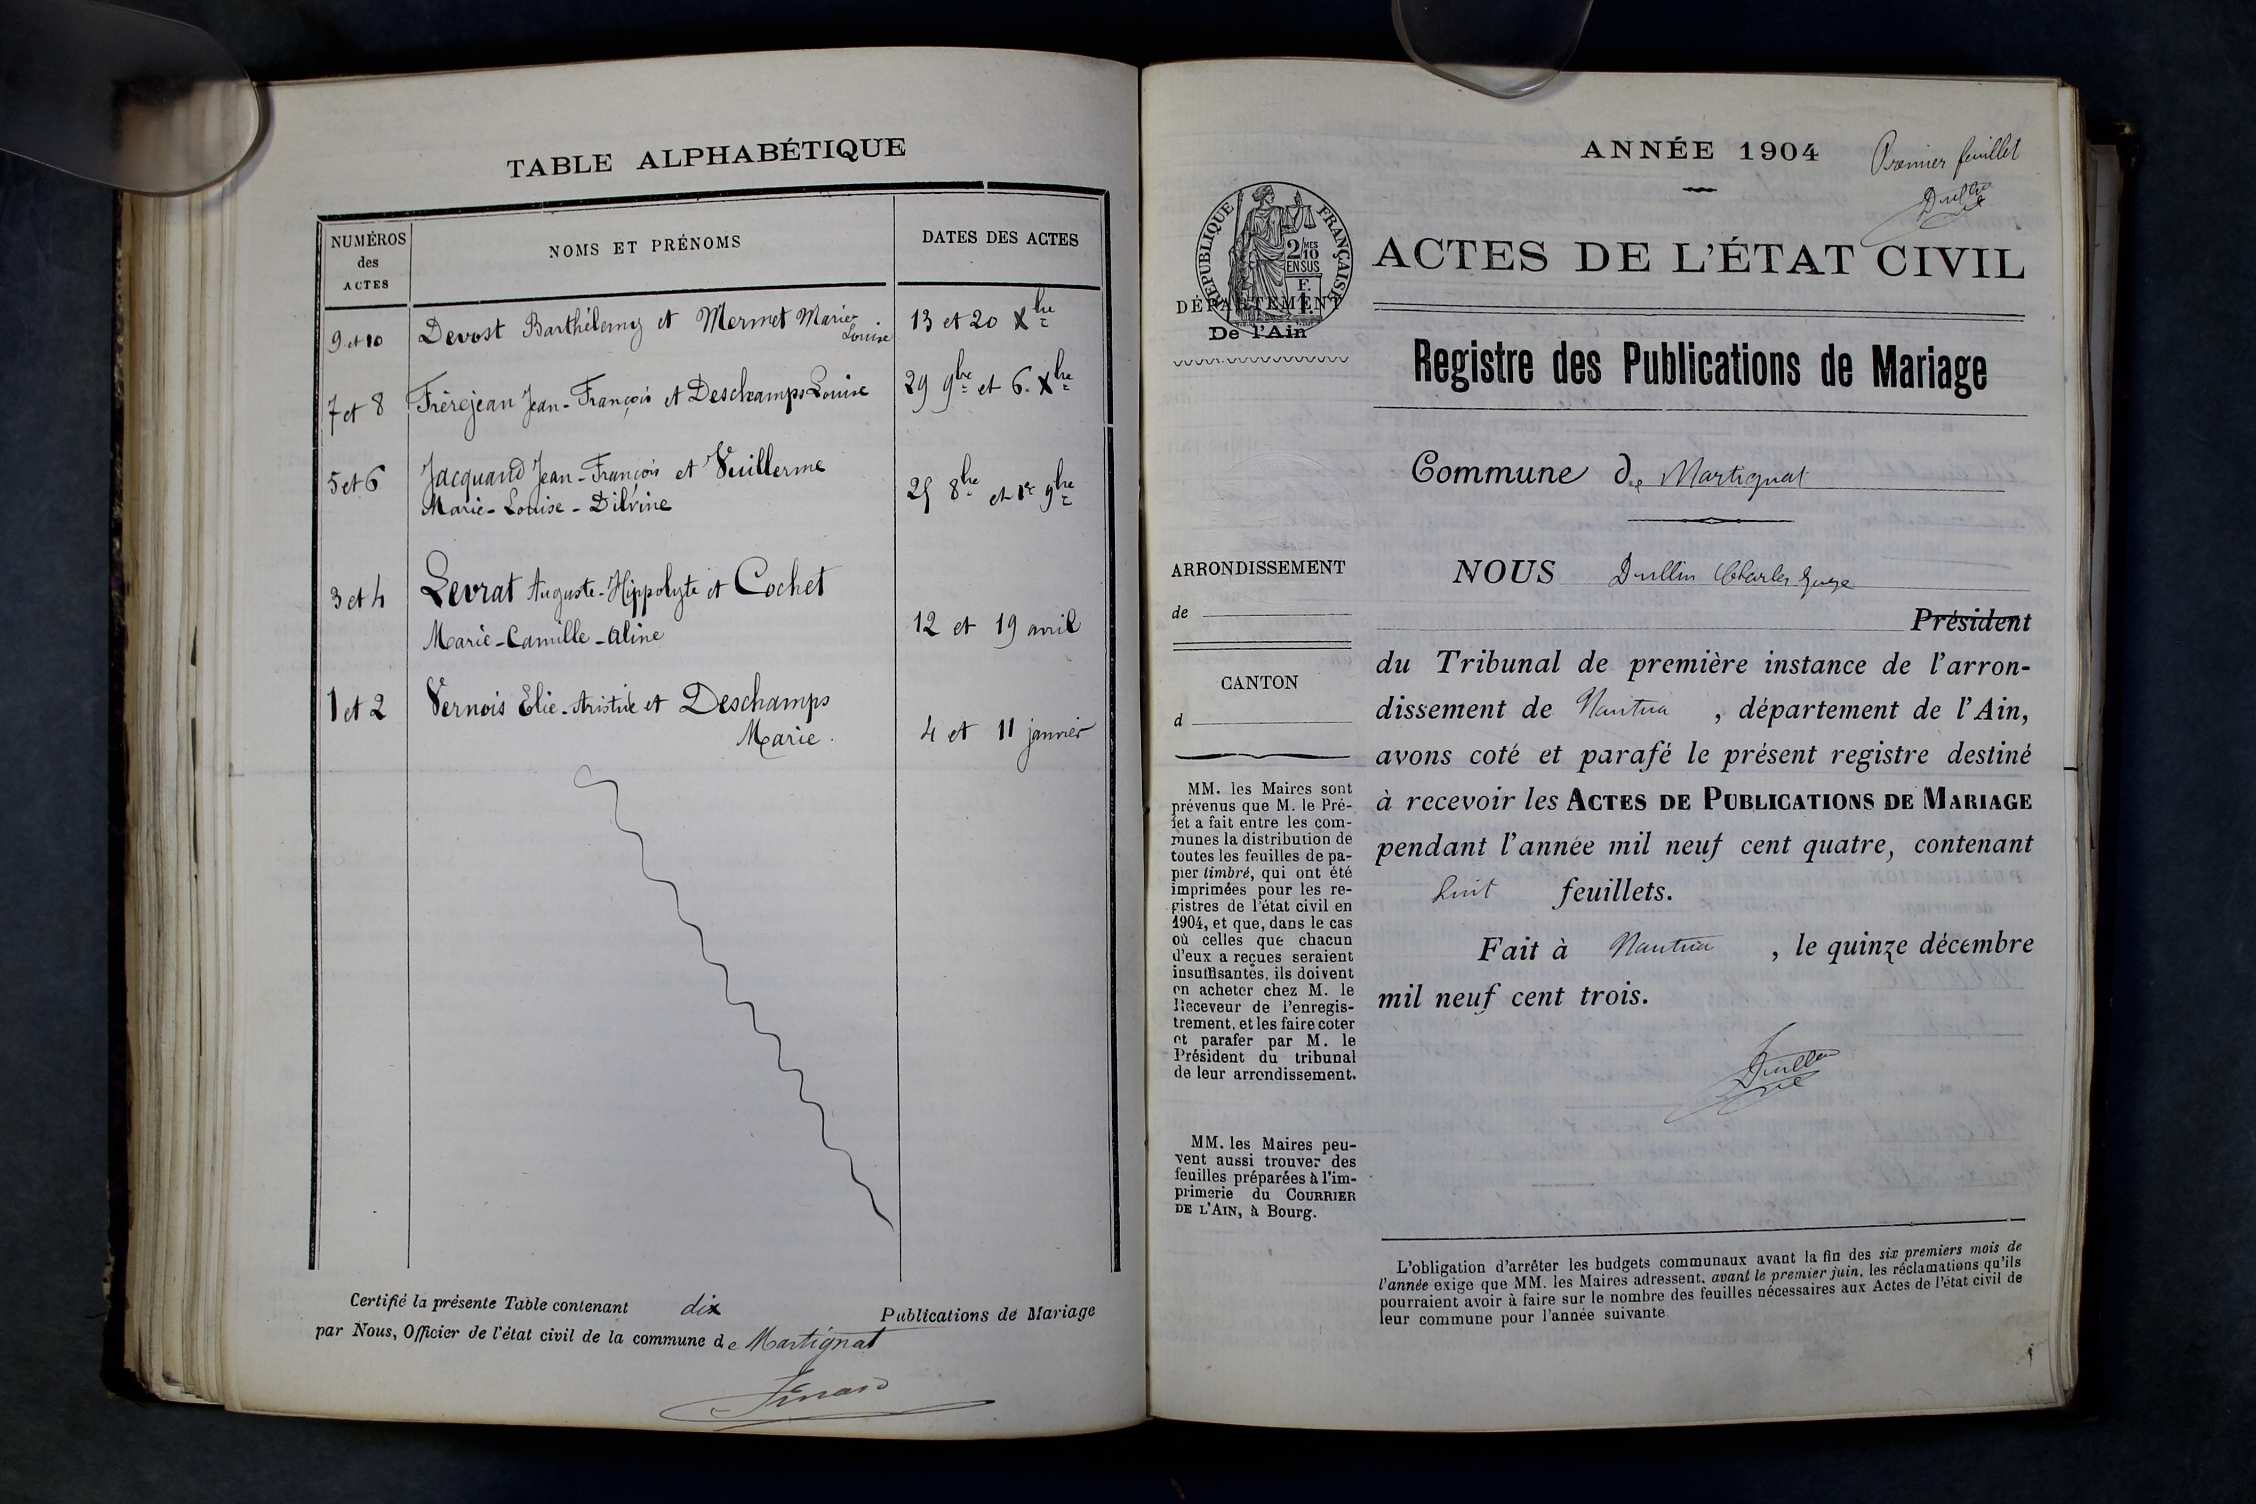 TABLE ALPHABÉTIQUE
NUMÉROS
des
ACTES
NOMS ET PRÉNOMS
DATES DES ACTES
9 et 10 Devost Barthélemy et Mermet Marie Louise 13 et 20 Xbre
7 et 8 Frèrejean Jean-François et Deschamps Louise 29 9bre et 6. Xbre
5 et 6 Jacquand Jean-François et Vuillerme
Marie-Louise- 25 8bre et 1er 9bre
3 et 4 Levrat Auguste-Hippolyte et Cochet
Marie-Camille-Aline 12 et 19 avril
1 et 2 Vernois Elie-Aristide et Deschamps
Marie. 4 et 11 janvier
Certifié la présente Table contenant dix Publications de Mariage
par Nous, Officier de l'état civil de la commune de Martignat
ANNÉE 1904
Premier feuillet
RÉPUBLIQUE FRANÇAISE
2/10 MES
EN SUS
F.
1.
DÉPARTEMENT
De l'Ain
ACTES DE L'ÉTAT CIVIL
Registre des Publications de Mariage
Commune de Martignat
ARRONDISSEMENT
de
CANTON
d
MM. les Maires sont
prévenus que M. le Pré-
fet a fait entre les com-
munes la distribution de
toutes les feuilles de pa-
pier timbré, qui ont été
imprimées pour les re-
gistres de l'état civil en
1904, et que, dans le cas
où celles que chacun
d'eux a reçues seraient
insuffisantes, ils doivent
en acheter chez M. le
Receveur de l'enregis-
trement, et les faire coter
et parafer par M. le
Président du tribunal
de leur arrondissement.
MM. les Maires peu-
vent aussi trouver des
feuilles préparées à l'im-
primerie du COURRIER
DE L'AIN, à Bourg.
NOUS Dullin Charles
Président
du Tribunal de première instance de l'arron-
dissement de Nantua , département de l'Ain,
avons coté et parafé le présent registre destiné
à recevoir les ACTES DE PUBLICATIONS DE MARIAGE
pendant l'année mil neuf cent quatre, contenant
huit feuillets.
Fait à Nantua , le quinze décembre
mil neuf cent trois.
L'obligation d'arrêter les budgets communaux avant la fin des six premiers mois de
l'année exige que MM. les Maires adressent, avant le premier juin, les réclamations qu'ils
pourraient avoir à faire sur le nombre des feuilles nécessaires aux Actes de l'état civil de
leur commune pour l'année suivante